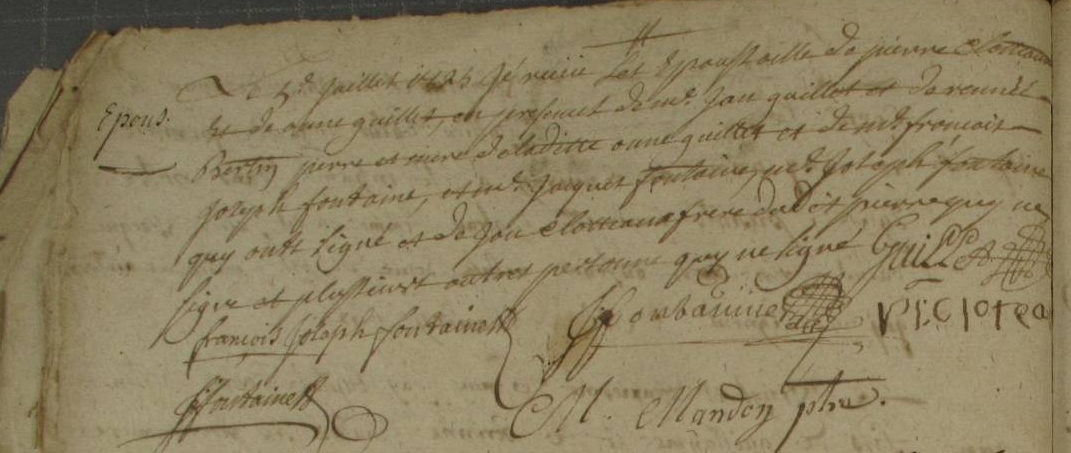 Le 5e. Juillet 1725 Jé reciü les Epousaille de pierre Cloteau
Epous.
et de anne guillet, en presence de me. Jan guillet et de renneé
Bertin perre et mere de laditte anne guillet et de me. francois
Joseph fontaine, et me. Jacques fontaine, me. Joseph fontaine
quy onts signé et de Jan Cloteau frere dudit pierre quy ne
signe et plussieurs autres personne quy ne signe Guillet
françois Joseph fontaine
J fontainne
PiClotea
J fontaine
M. Mandon ptre.